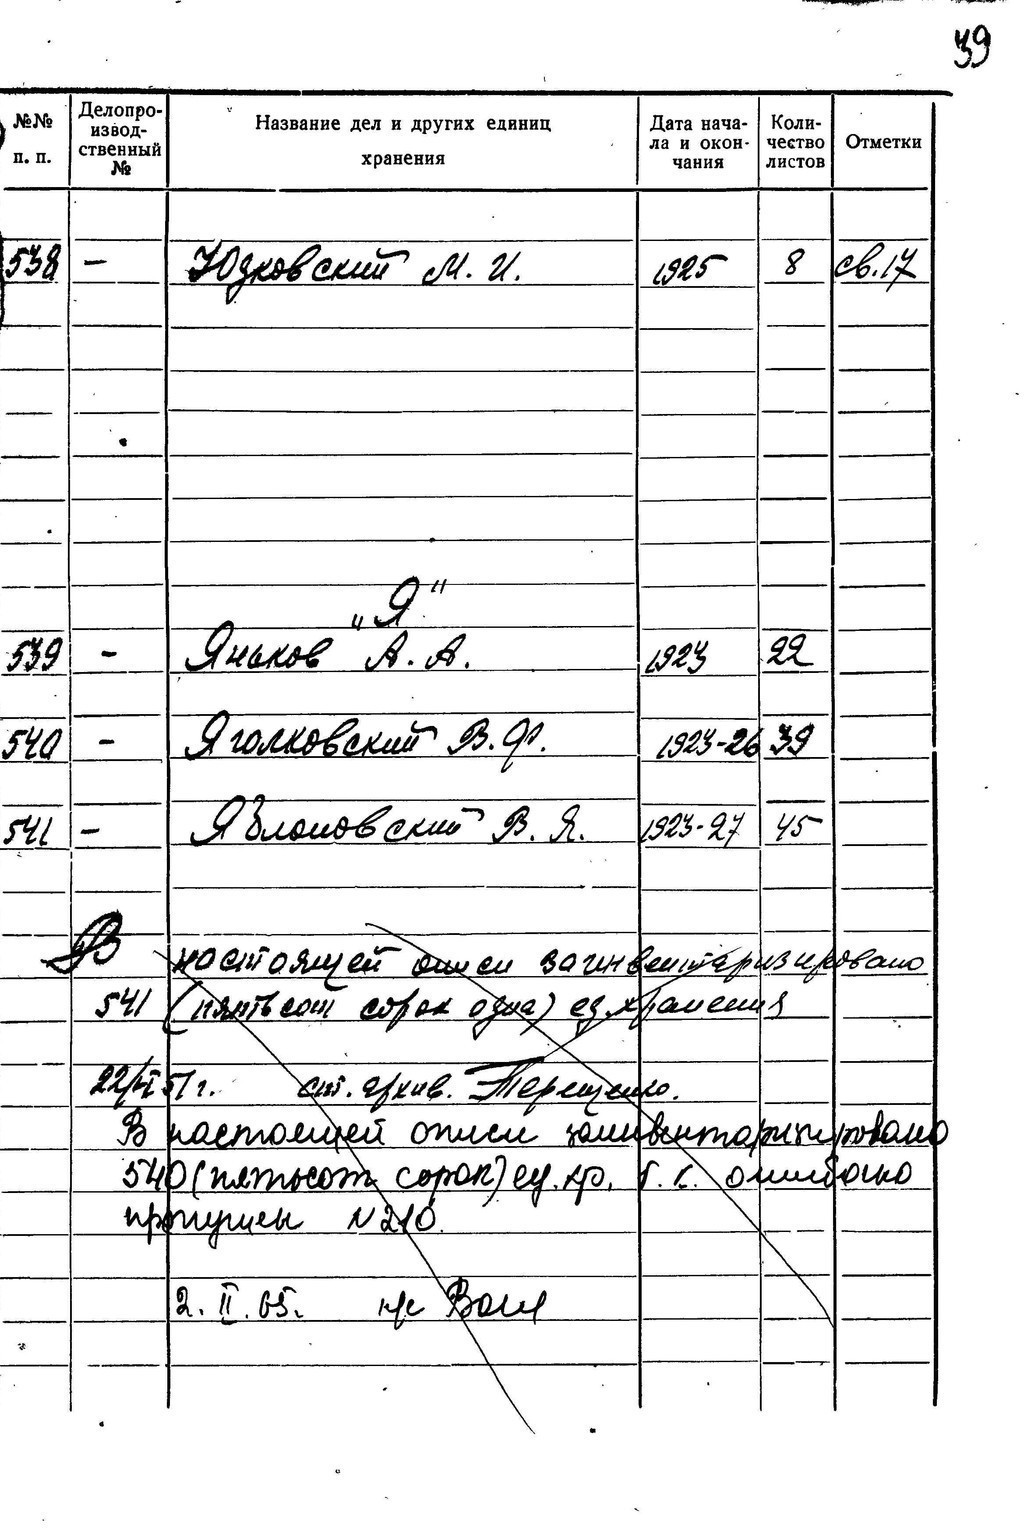 39
№№ п. п. Делопро-извод-ственный № Название дел и других единиц хранения Дата нача-ла и окон-чания Коли-чество листов Отметки
538 – Юдковский М. И. 1925 8 св. 17
„Я"
539 – Яньков А. А. 1923 22
540 – Яголковский В. Ф. 1923-26 39
541 – Яблоновский В. Я. 1923-27 45
В настоящей описи заинвентаризировано
541 (пятьсот сорок одна) ед. хранения
22/II 51 г. ст. архив. Терещенко.
В настоящей описи заинвентаризировано
540 (пятьсот сорок) ед. хр. т. к. ошибочно
пропущен № 210.
2. II. 65.